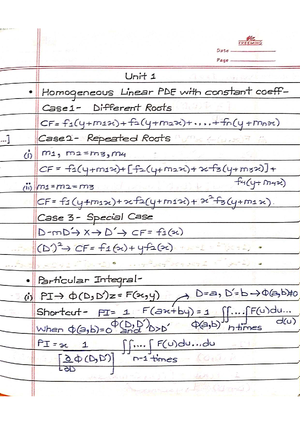 Date
Page
Unit 1
• Homogeneous Linear PDE with constant coeff-
Case1- Different Roots
CF = f₁(y+m₁x)+f₂(y+m₂x)+....+fₙ(y+mₙx)
Case2- Repeated Roots
(i) m₁, m₂=m₃,m₄
CF = f₁(y+m₁x)+[f₂(y+m₂x)+xf₃(y+m₃x)]+
f₄(y-m₄x)
(ii) m₁=m₂=m₃
CF = f₁(y+m₁x)+xf₂(y+m₁x)+x²f₃(y+m₁x)
Case 3- Special Case
D-mD'→X→D'→ CF=f₁(x)
(D')²→CF=f₁(x)+yf₂(x)
• Particular Integral-
(i) PI→ Φ(D,D')z = F(x,y) → D=a, D'=b→Φ(a,b)≠0
Shortcut- PI = 1 F(ax+by) = 1 ∬....∫F(u)du...
Φ(D,D') Φ(a,b) n-times d(u)
When Φ(a,b)=0 and D>D'
PI = x 1 ∬....∫F(u)du...du
[∂/∂D Φ(D,D')] n-1 times